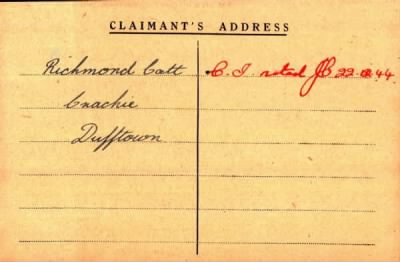 CLAIMANT'S ADDRESS
Richmond Cott
Crachie
Dufftown
C. I. noted JB 22.8.44